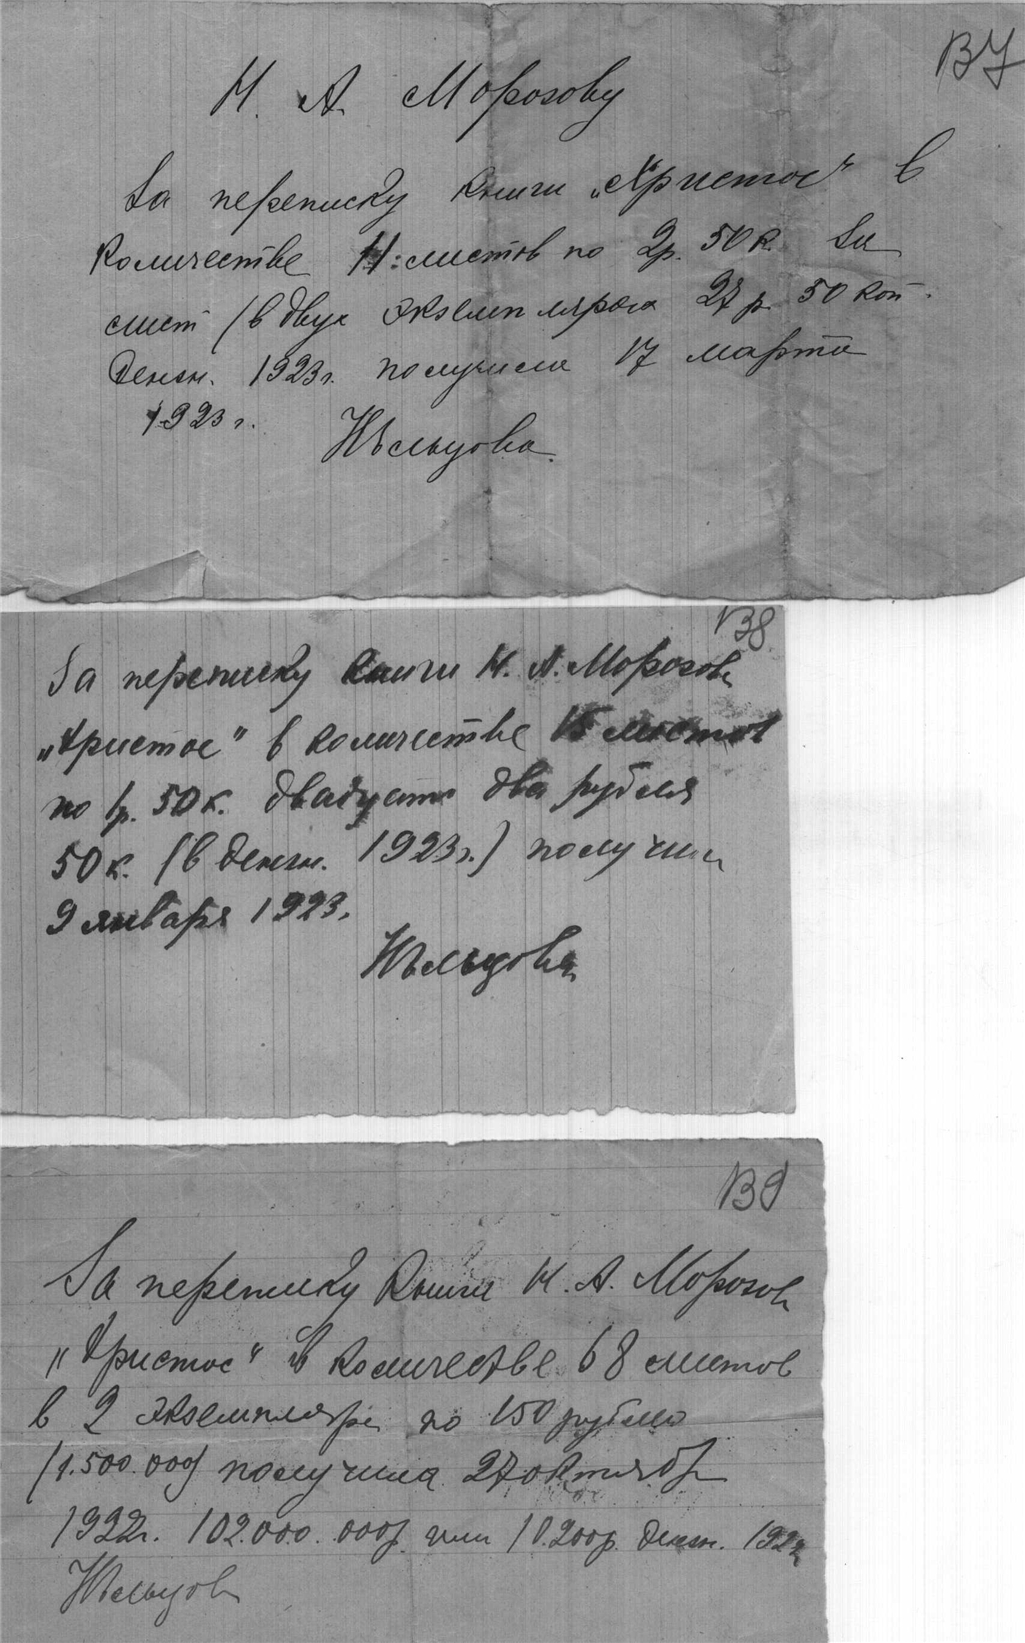 В7
Н. А. Морозову
За переписку книги „Христос" в
количестве 11: листов по 2р. 50 к. за
лист (в двух экземплярах 27 р. 50 коп.
дензн. 1923 г. получила 17 марта
1923 г.
Нѣльцова.
В8
За переписку книги Н. А. Морозова
„Христос" в количестве 15 листов
по 1р. 50 к. двадцать два рубля
50 к. (в дензн. 1923 г.) получила
9 января 1923.
Нѣльцова
В9
За переписку книги Н. А. Морозова
„Христос" в количестве 68 листов
в 2 экземпляра по 150 рублей
(1.500.000) получила 27 октября
1922г. 102.000.000р. или 10.200р. дензн. 1922
Нѣльцова